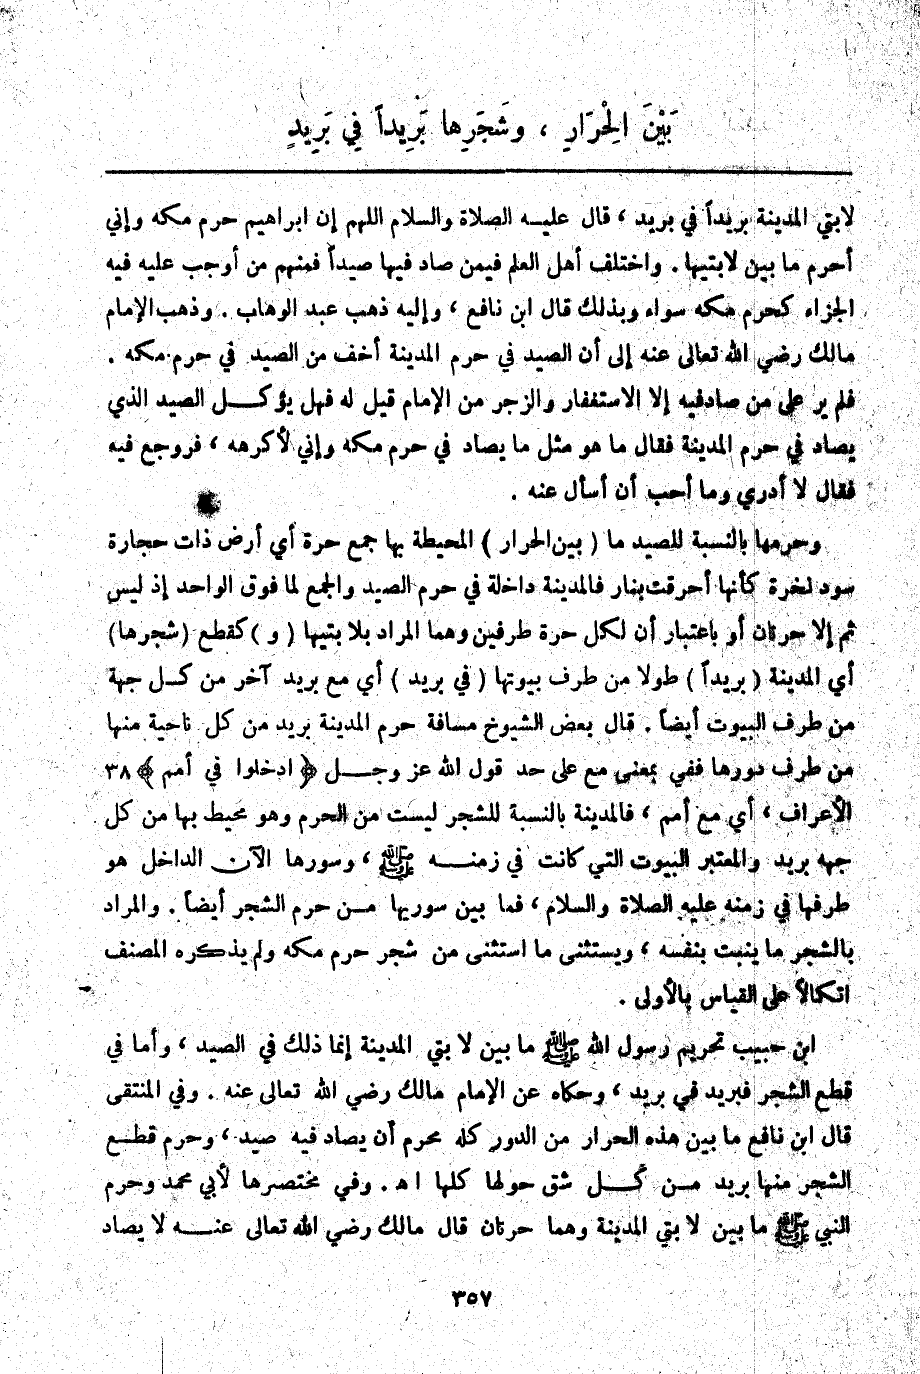 بَيْنَ الْحِرَارِ ، وشَجَرِها بَرِيداً فِي بَرِيدٍ
لابتي المدينة بريداً في بريد ، قال عليـه الصلاة والسلام اللهم إن ابراهيم حرم مكه وإني
أحرم ما بين لابتيها . واختلف أهل العلم فيمن صاد فيها صيداً فمنهم من أوجب عليه فيه
الجزاء كحرم مكه سواء وبذلك قال ابن نافع ، وإليه ذهب عبد الوهاب . وذهب الإمام
مالك رضي الله تعالى عنه إلى أن الصيد في حرم المدينة أخف من الصيد في حرم مكه .
فلم ير على من صادفيه إلا الاستغفار والزجر من الإمام قيل له فهل يؤكـــل الصيد الذي
يصاد في حرم المدينة فقال ما هو مثل ما يصاد في حرم مكه وإني لأكرهه ، فروجع فيه
فقال لا أدري وما أحب أن أسأل عنه .
وحرمها بالنسبة للصيد ما ( بين الحرار ) المحيطة بها جمع حرة أي أرض ذات حجارة
سود نخرة كأنها أحرقت بنار فالمدينة داخلة في حرم الصيد والجمع لما فوق الواحد إذ ليس
ثم إلا حرتان أو باعتبار أن لكل حرة طرفين وهما المراد بلا بتيها ( و ) كقطع ( شجرها )
أي المدينة ( بريداً ) طولا من طرف بيوتها ( في بريد ) أي مع بريد آخر من كـل جهة
من طرف البيوت أيضاً . قال بعض الشيوخ مسافة حرم المدينة بريد من كل ناحية منها
من طرف دورها ففي بمعنى مع على حد قول الله عز وجـــل ﴿ ادخلوا في أمم ﴾ ٣٨
الأعراف ، أي مع أمم ، فالمدينة بالنسبة للشجر ليست من الحرم وهو محيط بها من كل
جهه بريد والمعتبر البيوت التي كانت في زمنـــه ﷺ ، وسورها الآن الداخل هو
طرفها في زمنه عليه الصلاة والسلام ، فما بين سوريها مـن حرم الشجر أيضاً . والمراد
بالشجر ما ينبت بنفسه ، ويستثنى ما استثنى من شجر حرم مكه ولم يذكره المصنف
اتكالاً على القياس بالأولى .
ابن حبيب تحريم رسول الله ﷺ ما بين لا بتي المدينة إنما ذلك في الصيد ، وأما في
قطع الشجر فبريد في بريد ، وحكاه عن الإمام مالك رضي الله تعالى عنه . وفي المنتقى
قال ابن نافع ما بين هذه الحرار من الدور كله محرم أن يصاد فيه صيد ، وحرم قطـع
الشجر منها بريد مـن كـــل شق حولها كلها ا ه . وفي مختصرها لأبي محمد وحرم
النبي ﷺ ما بين لا بتي المدينة وهما حرتان قال مالك رضي الله تعالى عنـــه لا يصاد
٣٥٧